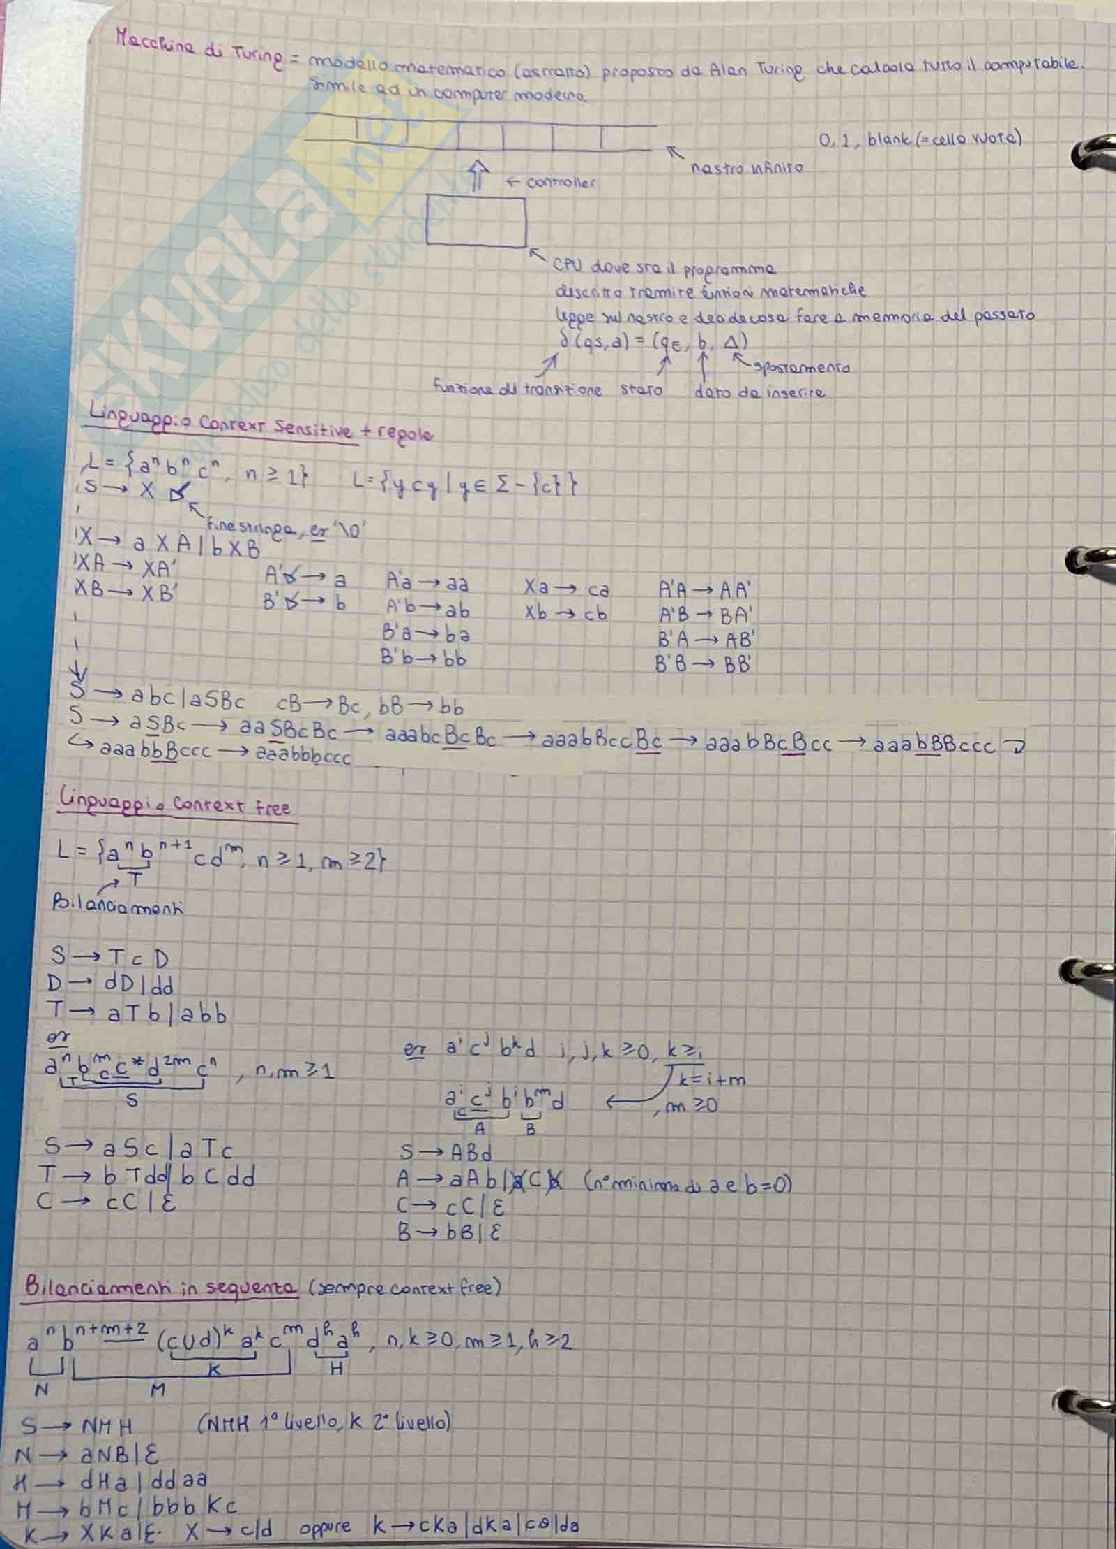 Macchina di Turing = modello matematico (astratto) proposto da Alan Turing che calcola tutto il computabile.
Simile ad un computer moderno.
0, 1, blank (= cella vuota)
nastro infinito
← controller
CPU dove sta il programma
descritto tramite funzioni matematiche
legge sul nastro e decide cosa fare a memoria del passato
δ(qs, a) = (qε, b, Δ)
spostamento
funzione di transizione stato dato da inserire
SKUOLA.net
Linguaggio Context Sensitive + regole
L = {aⁿ bⁿ cⁿ, n ≥ 1} L = {y c y | y ∈ Σ - {c} }
S → X ɣ
fine stringa, es '\0'
X → a X A | b X B
XA → XA'
XB → XB'
A'ɣ → a A'a → aa Xa → ca A'A → AA'
B'ɣ → b A'b → ab Xb → cb A'B → BA'
B'a → ba B'A → AB'
B'b → bb B'B → BB'
S → abc | aSBc cB → Bc, bB → bb
S → aSBc → aaSBcBc → aaabcBcBc → aaabBccBc → aaabBcBcc → aaabBBccc
↳ aaabbBccc → aaabbbccc
Linguaggio Context free
L = {aⁿ bⁿ⁺¹ c dᵐ, n ≥ 1, m ≥ 2}
T
Bilanciamenti
S → T c D
D → dD | dd
T → aTb | abb
es
aⁿ bᵐ c* d²ᵐ cⁿ , n, m ≥ 1
T C
S
S → aSc | aTc
T → bTdd | bCdd
C → cC | ε
es aⁱ cʲ bᵏ d i, j, k ≥ 0, k ≥ i
k = i+m
aⁱ cʲ bⁱ bᵐ d ← , m ≥ 0
C
A B
S → ABd
A → aAb | a C b (n° minimo di a e b = 0)
C → cC | ε
B → bB | ε
Bilanciamenti in sequenza (sempre context free)
aⁿ bⁿ⁺ᵐ⁺² (c∪d)ᵏ aᵏ cᵐ dʰ aʰ , n, k ≥ 0, m ≥ 1, h ≥ 2
K H
N M
S → NMH (NMH 1° livello, K 2° livello)
N → aNB | ε
H → dHa | ddaa
M → bMc | bbbKc
K → XKa | ε X → c/d oppure K → cKa | dKa | ca | da